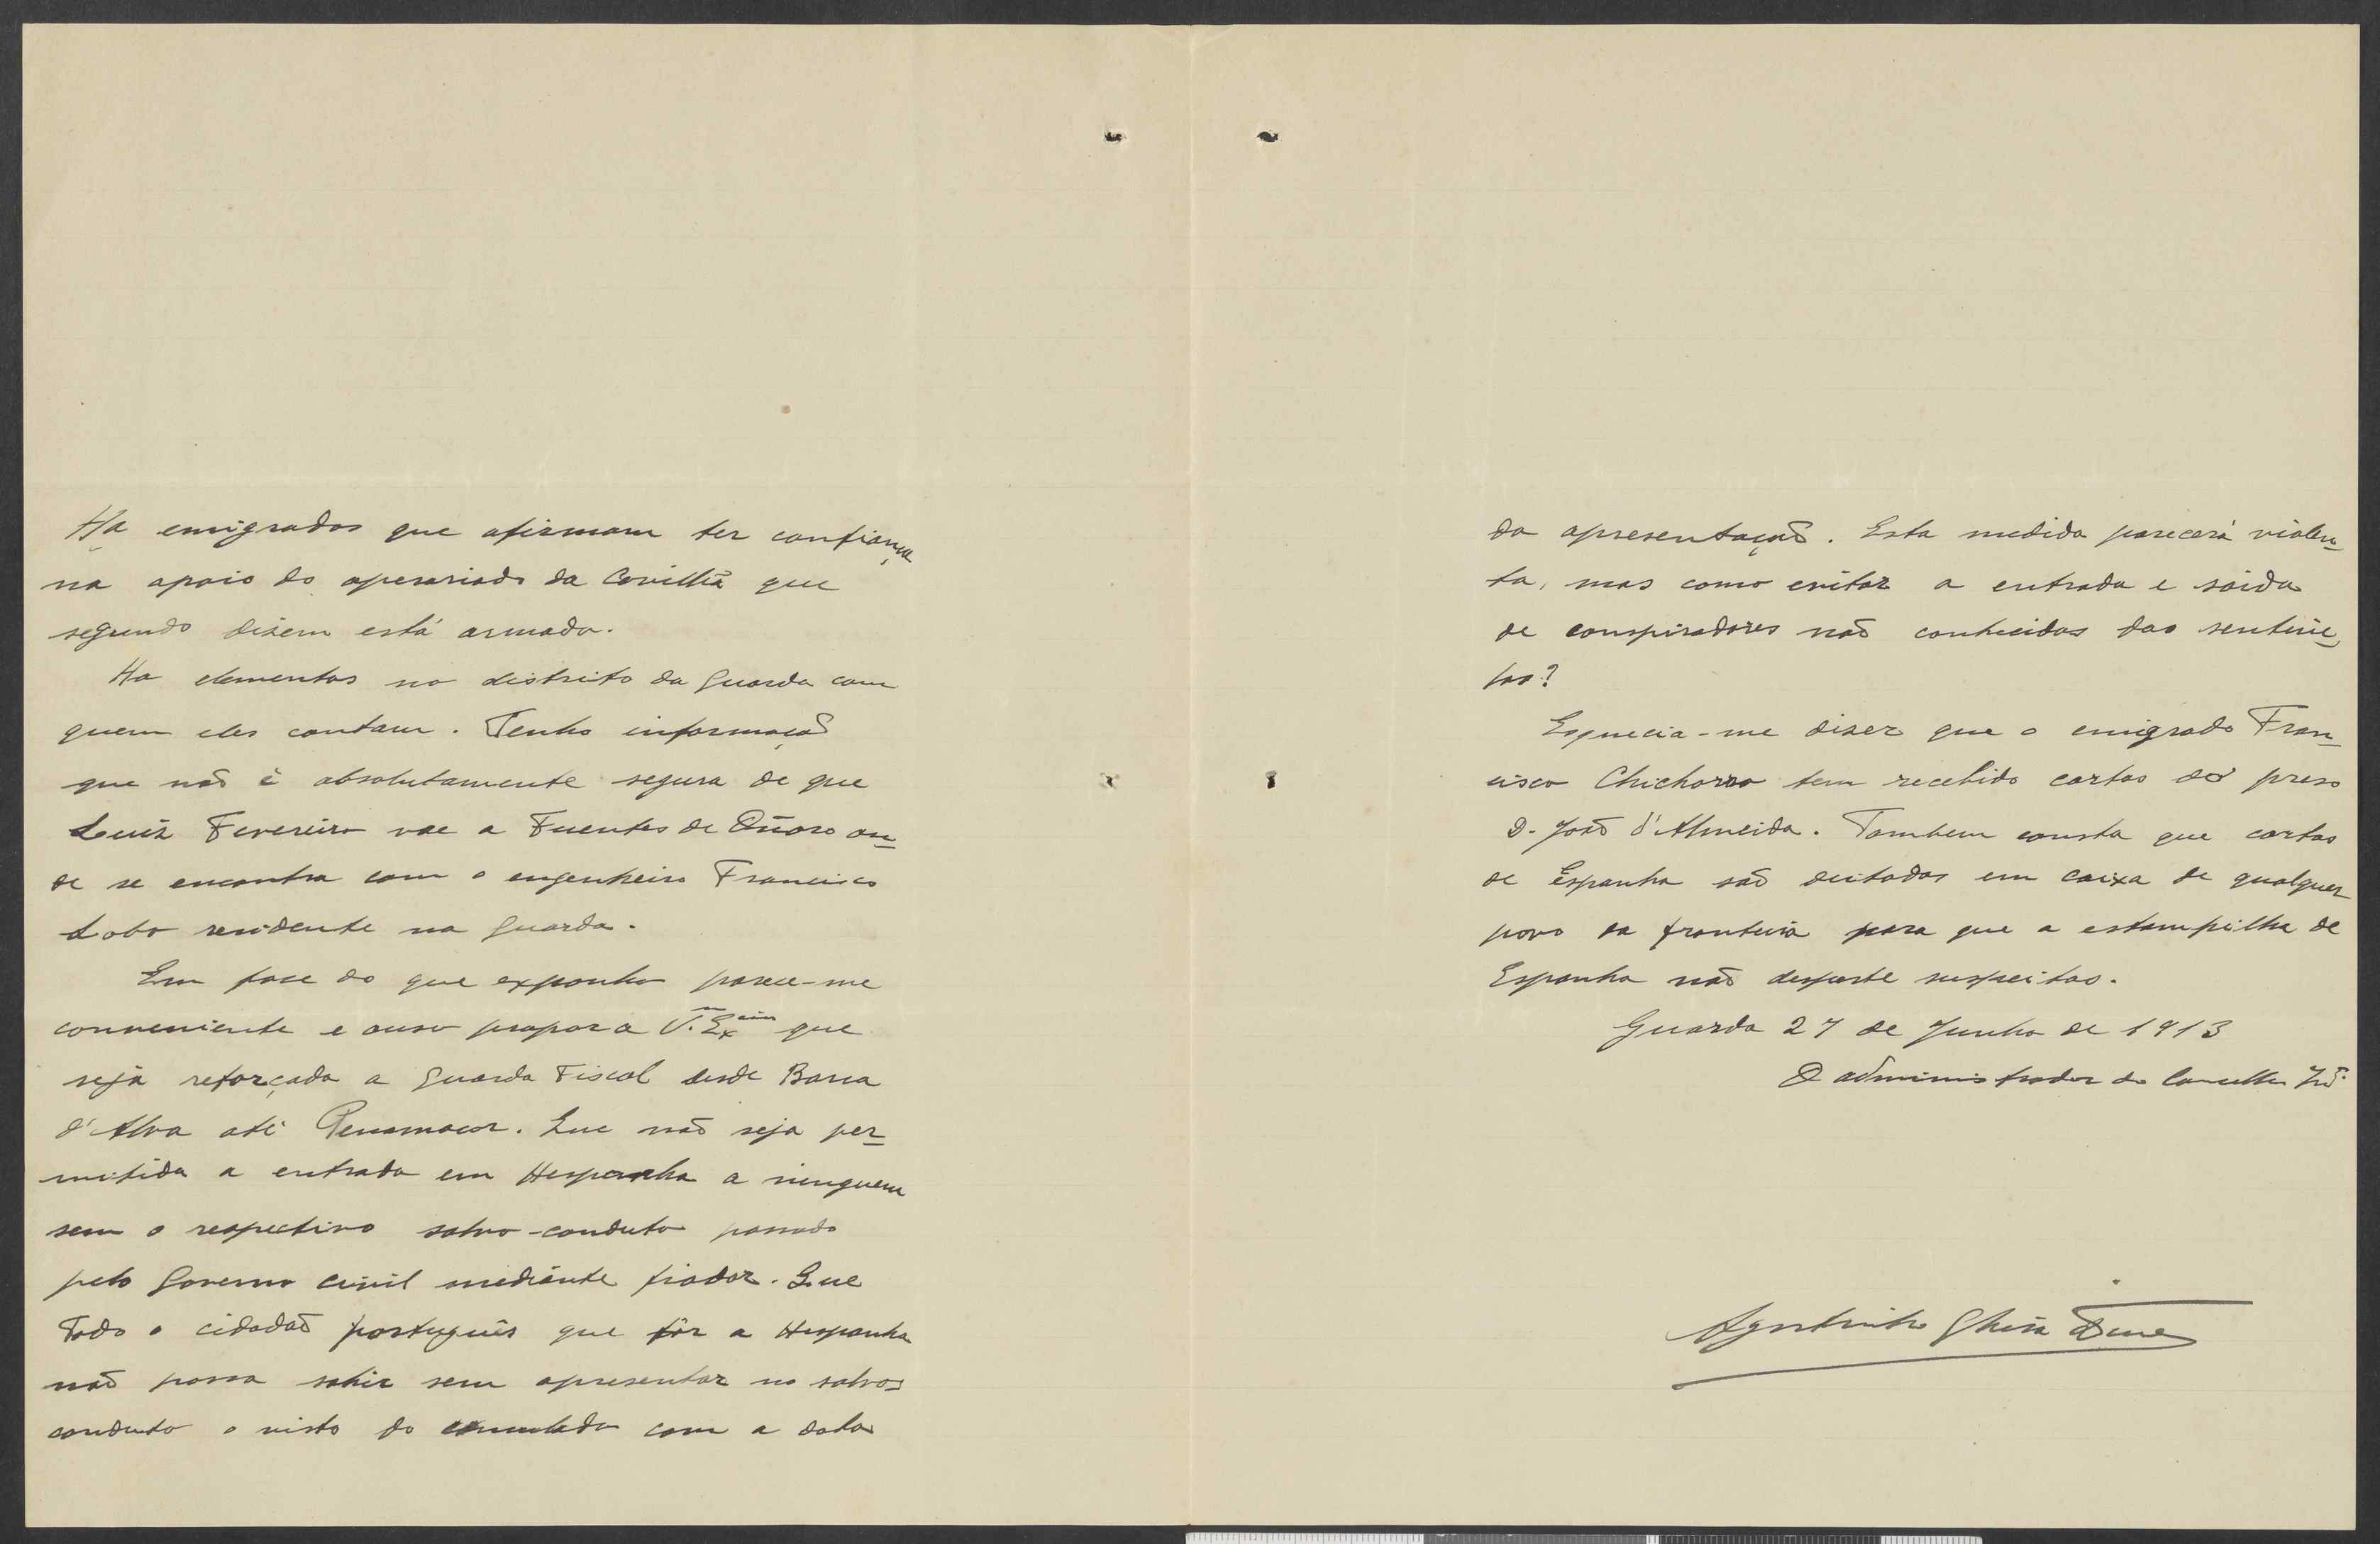 Ha emigrados que afirmam ter confiança
no apoio do operariado da Covilhã que
segundo disem está armado.
Ha elementos no distrito da Guarda com
quem eles contam. Tenho informação
que não é absolutamente segura de que
Luiz Fevereiro vae a Fuentes de Oñoro on-
de se encontra com o engenheiro Francisco
Lobo residente na Guarda.
Em face do que exponho parece-me
conveniente e ouso propor a V. Ex.cia que
seja reforçada a Guarda Fiscal desde Barca
d'Alva até Penamacor. Que não seja per-
mitida a entrada em Hespanha a ninguem
sem o respectivo salvo-conduto passado
pelo Governo Civil mediante fiador. Que
todo o cidadão português que fôr a Hespanha
não possa sahir sem apresentar no salvo-
conduto o visto do consulado com a data
da apresentação. Esta medida parecerá violen-
ta, mas como evitar a entrada e saida
de conspiradores não conhecidos das sentine-
las?
Esquecia-me diser que o emigrado Fran-
cisco Chichorro tem recebido cartas do preso
D. João d'Almeida. Tambem consta que cartas
de Espanha são deitadas em caixa de qualquer
povo da fronteira para que a estampilha de
Espanha não desperte suspeitas.
Guarda 27 de Junho de 1913
O administrador do Concelho
Agostinho